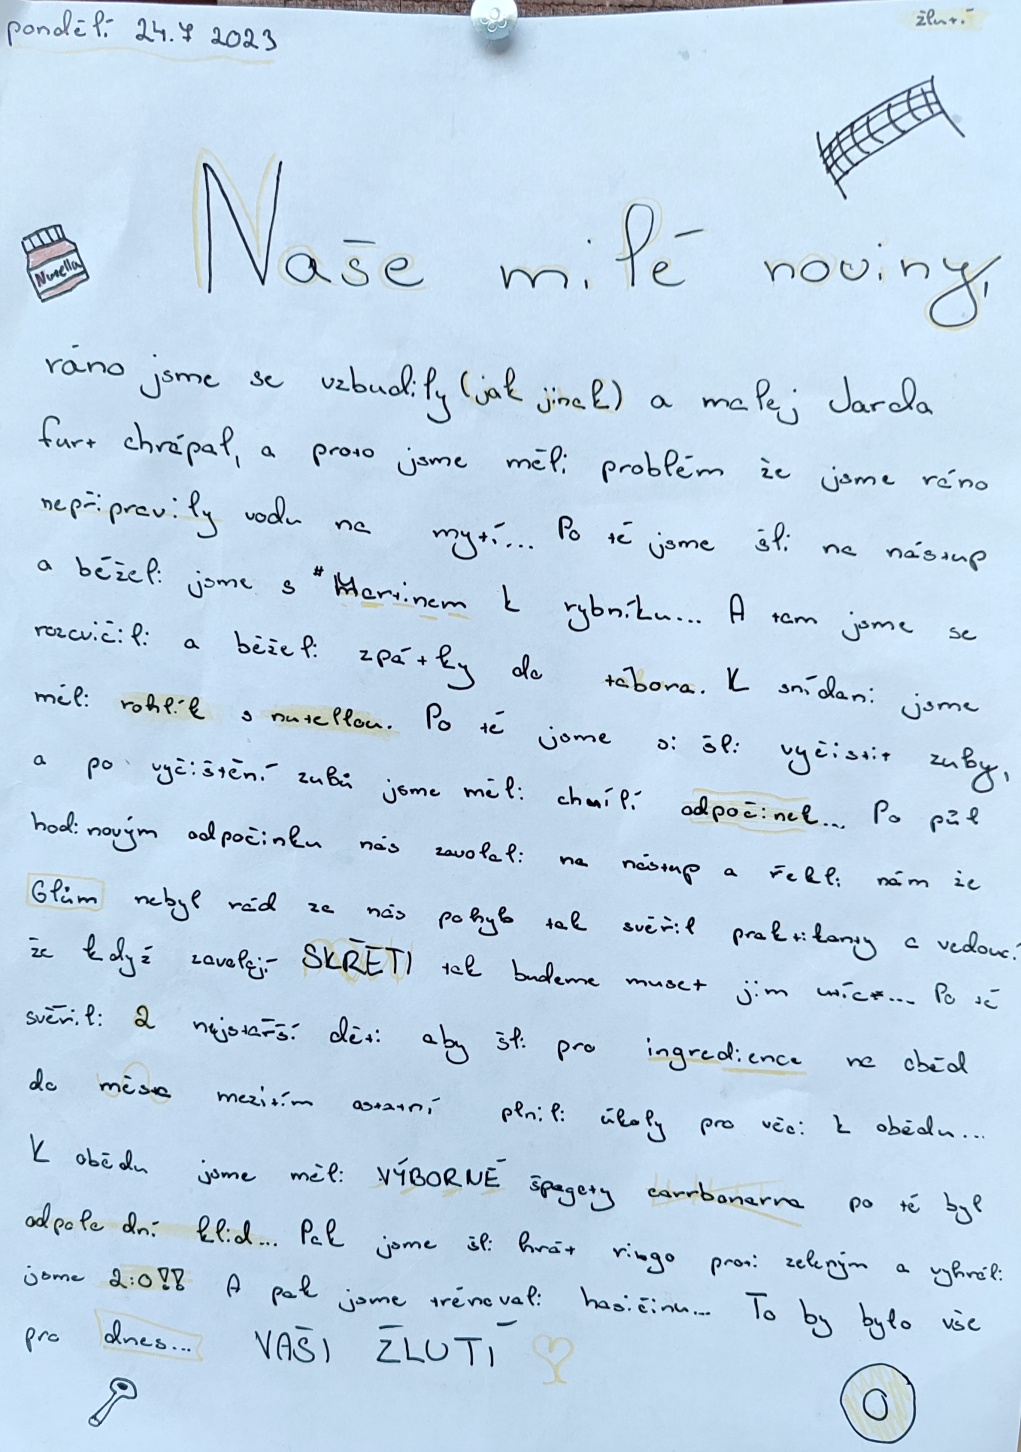 pondělí 24.7 2023
žlutí
Nutella
Naše milé noviny,
ráno jsme se vzbudily (jak jinak) a malej Jarda
furt chrápal, a proto jsme měli problém že jsme ráno
nepřipravily vodu na mytí... Po té jsme šli na nástup
a běželi jsme s #Martinem k rybníku... A tam jsme se
rozcvičili a běželi zpátky do tábora. K snídani jsme
měli rohlík s nutellou. Po té jsme si šli vyčistit zuby,
a po vyčištění zubů jsme měli chvílí odpočinek... Po půl
hodinovým odpočinku nás zavolali na nástup a řekli nám že
Glům nebyl rád za náš pohyb tak svěřil praktikanty a vedoucí
že když zavolají SKŘETI tak budeme muset jim utíct... Po té
svěřili 2 nejstarší děti aby šli pro ingredience na oběd
do města mezitím ostatní plnili úkoly pro věci k obědu...
K obědu jsme měli VÝBORNÉ špagety carrbonarra po té byl
odpolední klid... Pak jsme šli hrát ringo proti zeleným a vyhráli
jsme 2:0!! A pak jsme trénovali hasičinu... To by bylo vše
pro dnes... VAŠI ŽLUTÍ